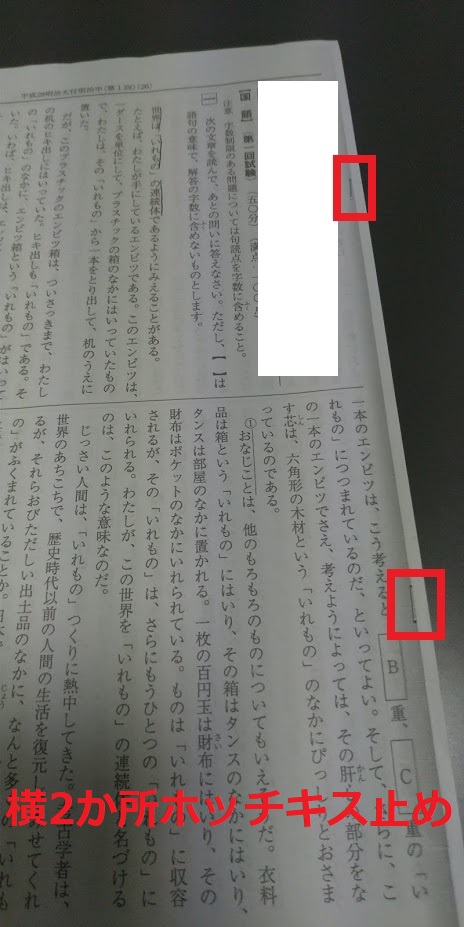 平成28明治大付明治中(第1回)(26)
【国語】〔第一回試験〕(五〇分)〈満点:一〇〇点〉
注意 字数制限のある問題については句読点を字数に含めること。
一 次の文章を読んで、あとの問いに答えなさい。ただし、【 】は
語句の意味で、解答の字数に含めないものとします。
世界は、「いれもの」の連続体であるようにみえることがある。
たとえば、わたしが手にしているエンピツである。このエンピツは、
一ダースを単位にして、プラスチックの箱のなかにはいっていたもの
で、わたしは、その「いれもの」から一本をとり出して、机のうえに
置いた。
だが、このプラスチックのエンピツ箱は、ついさっきまで、わたし
の机のヒキ出しにはいっていた。ヒキ出しも「いれもの」である。そ
の「いれもの」のなかに、エンピツ箱という「いれもの」がはいって
いた。いわば、ヒキ出しは、エンピツ
一本のエンピツは、こう考えると B 重、 C 重の「い
れもの」につつまれているのだ、といってよい。そして、さらに、こ
の一本のエンピツでさえ、考えようによっては、その肝かん 部分をな
す芯しんは、六角形の木材という「いれもの」のなかにぴっ りとおさま
っているのである。
①おなじことは、他のもろもろのものについてもいえ だ。衣料
品は箱という「いれもの」にはいり、その箱はタンスのなかにはいり、
タンスは部屋のなかに置かれる。一枚の百円玉は財布さいふにはいり、その
財布はポケットのなかにいれられている。ものは「いれ 」に収容
されるが、その「いれもの」は、さらにもうひとつの「 もの」に
いれられる。わたしが、この世界を「いれもの」の連続 名づける
のは、このような意味なのだ。
じっさい人間は、「いれもの」つくりに熱中してきた。 古学者は、
世界のあちこちで、歴史時代以前の人間の生活を復元し せてくれ
るが、それらおびただしい出土品のなかに、なんと多 「いれも
の」がふくまれていることか。
横2か所ホッチキス止め